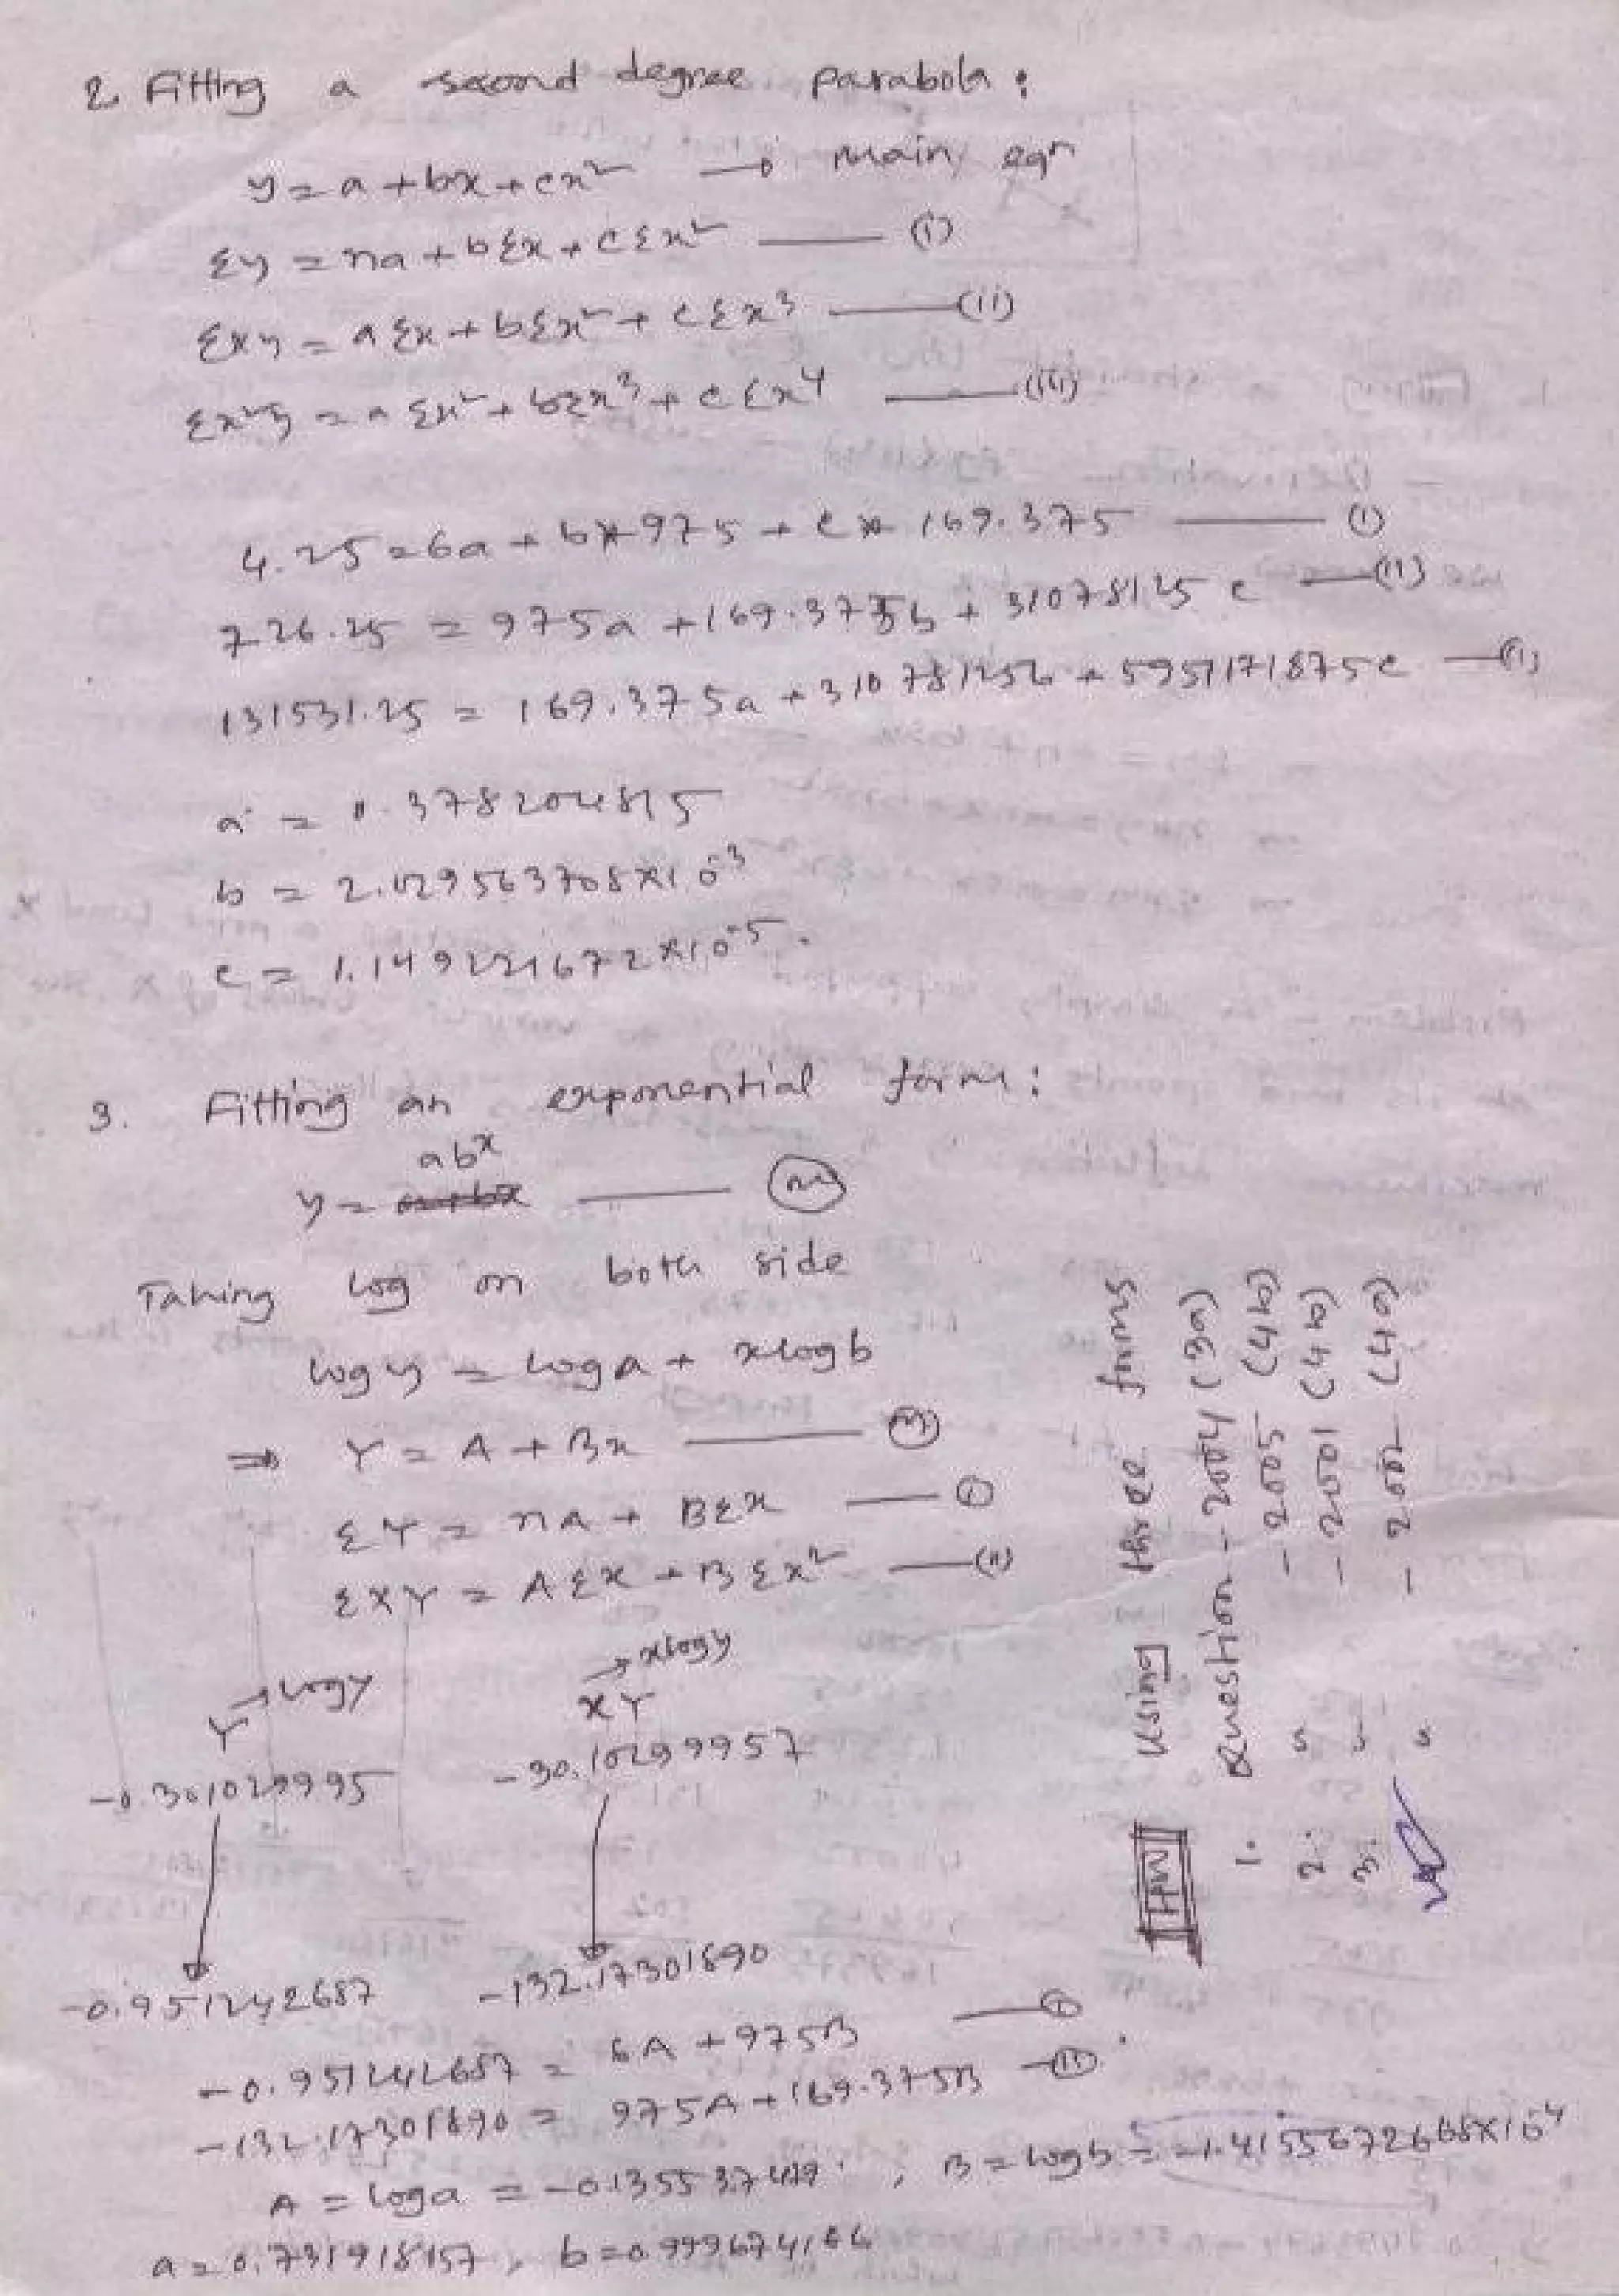 2. Fitting a second degree parabola :
y = a + bx + cx² → Main eqn
Σy = na + bΣx + cΣx² — (i)
Σxy = aΣx + bΣx² + cΣx³ — (ii)
Σx²y = aΣx² + bΣx³ + cΣx⁴ — (iii)
4.25 = 6a + b*975 + c* 169.375 — (i)
726.25 = 975a + 169.375b + 31078125 c — (ii)
131531.25 = 169.375a + 31078125b + 5951171875c
a = 0.378204815
b = 2.029563708×10⁻³
3. Fitting an exponential form :
abˣ
y = — (M)
Taking log on both side
log y = log a + x log b
⇒ Y = A + Bx — (M)
ΣY = nA + BΣx — (i)
ΣXY = AΣX + BΣX² — (ii)
Y → logy
XY → xlogy
-0.301029995 -30.10299957
-0.951242687 -132.17301690
-0.951242687 = 6A + 975B — (i)
-132.17301690 = 975A + 169.375B — (ii)
A = log a = , B = log b =
a = 0.731918157, b =
HW Using three forms
1. Question - 2004 (3a)
2. " - 2005 (4b)
3. " - 2001 (4b)
" - 2002 (4a)